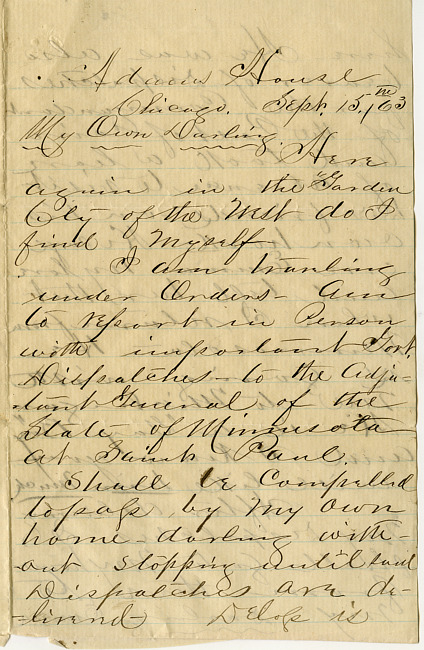 Adams House
Chicago. Sept. 15.th /63
My Own Darling.
Here
again in the "Garden
City of the West do I
find Myself.
I am traveling
under Orders - Am
to report in Person
with important Govt.
Dispatches - to the Adju-
-tant General of the
State of Minnesota
at Saint Paul.
Shall be Compelled
to pass by my own
home - darling with-
-out stopping until said
Dispatches are de-
-livered - Delos is